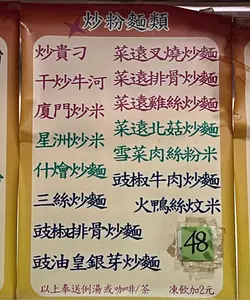 炒粉麵類
炒貴刁
干炒牛河
廈門炒米
星洲炒米
什燴炒麵
三絲炒麵
豉椒排骨炒麵
豉油皇銀芽炒麵
菜遠叉燒炒麵
菜遠排骨炒麵
菜遠雞絲炒麵
菜遠北菇炒麵
雪菜肉絲粉米
豉椒牛肉炒麵
火鴨絲炆米
48
以上奉送例湯或咖啡/茶
凍飲加2元